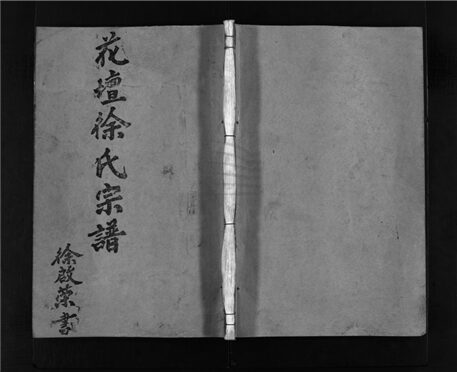 花壇徐氏宗譜
徐啟榮書